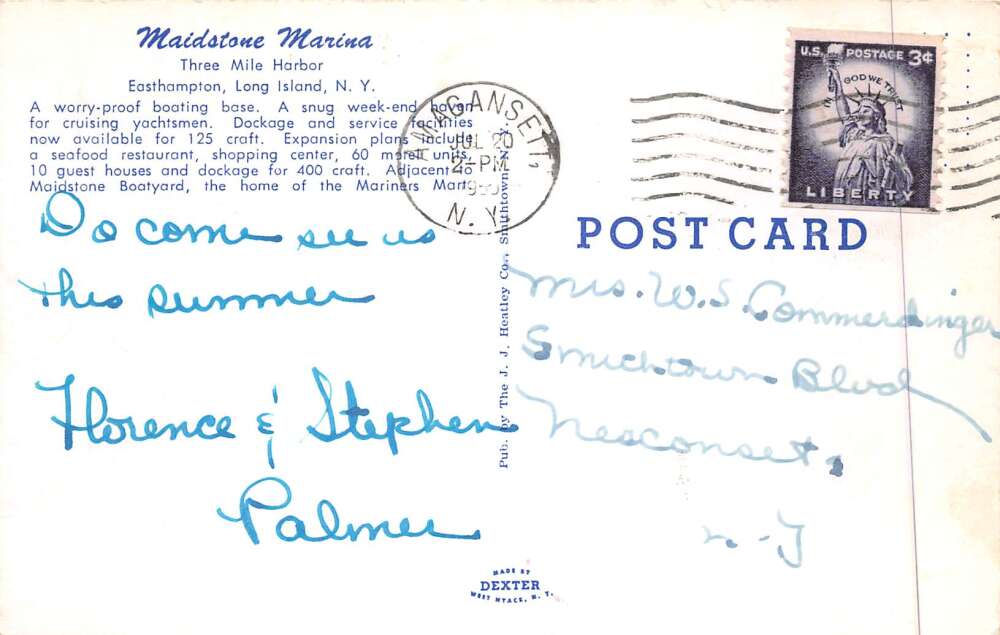 Maidstone Marina
Three Mile Harbor
Easthampton, Long Island, N. Y.
A worry-proof boating base. A snug week-end haven
for cruising yachtsmen. Dockage and service facilities
now available for 125 craft. Expansion plans include
a seafood restaurant, shopping center, 60 motel units,
10 guest houses and dockage for 400 craft. Adjacent to
Maidstone Boatyard, the home of the Mariners Mart.
AMAGANSETT,
JUL 20
2-PM
N.Y.
U.S. POSTAGE 3¢
IN GOD WE TRUST
LIBERTY
POST CARD
Do come see us
this summer
Florence & Stephen
Palmer
Pub. by The J. J. Heatley Co., Smithtown, N. Y.
Mrs. W. S. Commerdinger
Smithtown Blvd
Nesconset,
N-Y
MADE BY
DEXTER
WEST NYACK, N. Y.